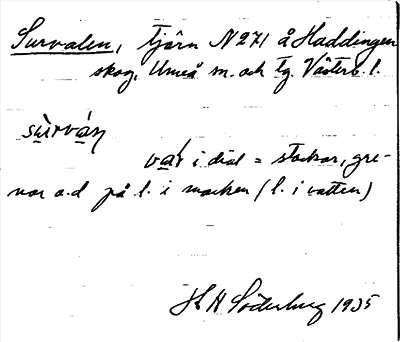 Survalen, tjärn N 271 å Haddingen
skog, Umeå m. och tg. Västerb. l.
sùrván
var i dial = stockar, gre-
nar o.d på l. i marken (l. i vatten)
H H Söderberg 1935